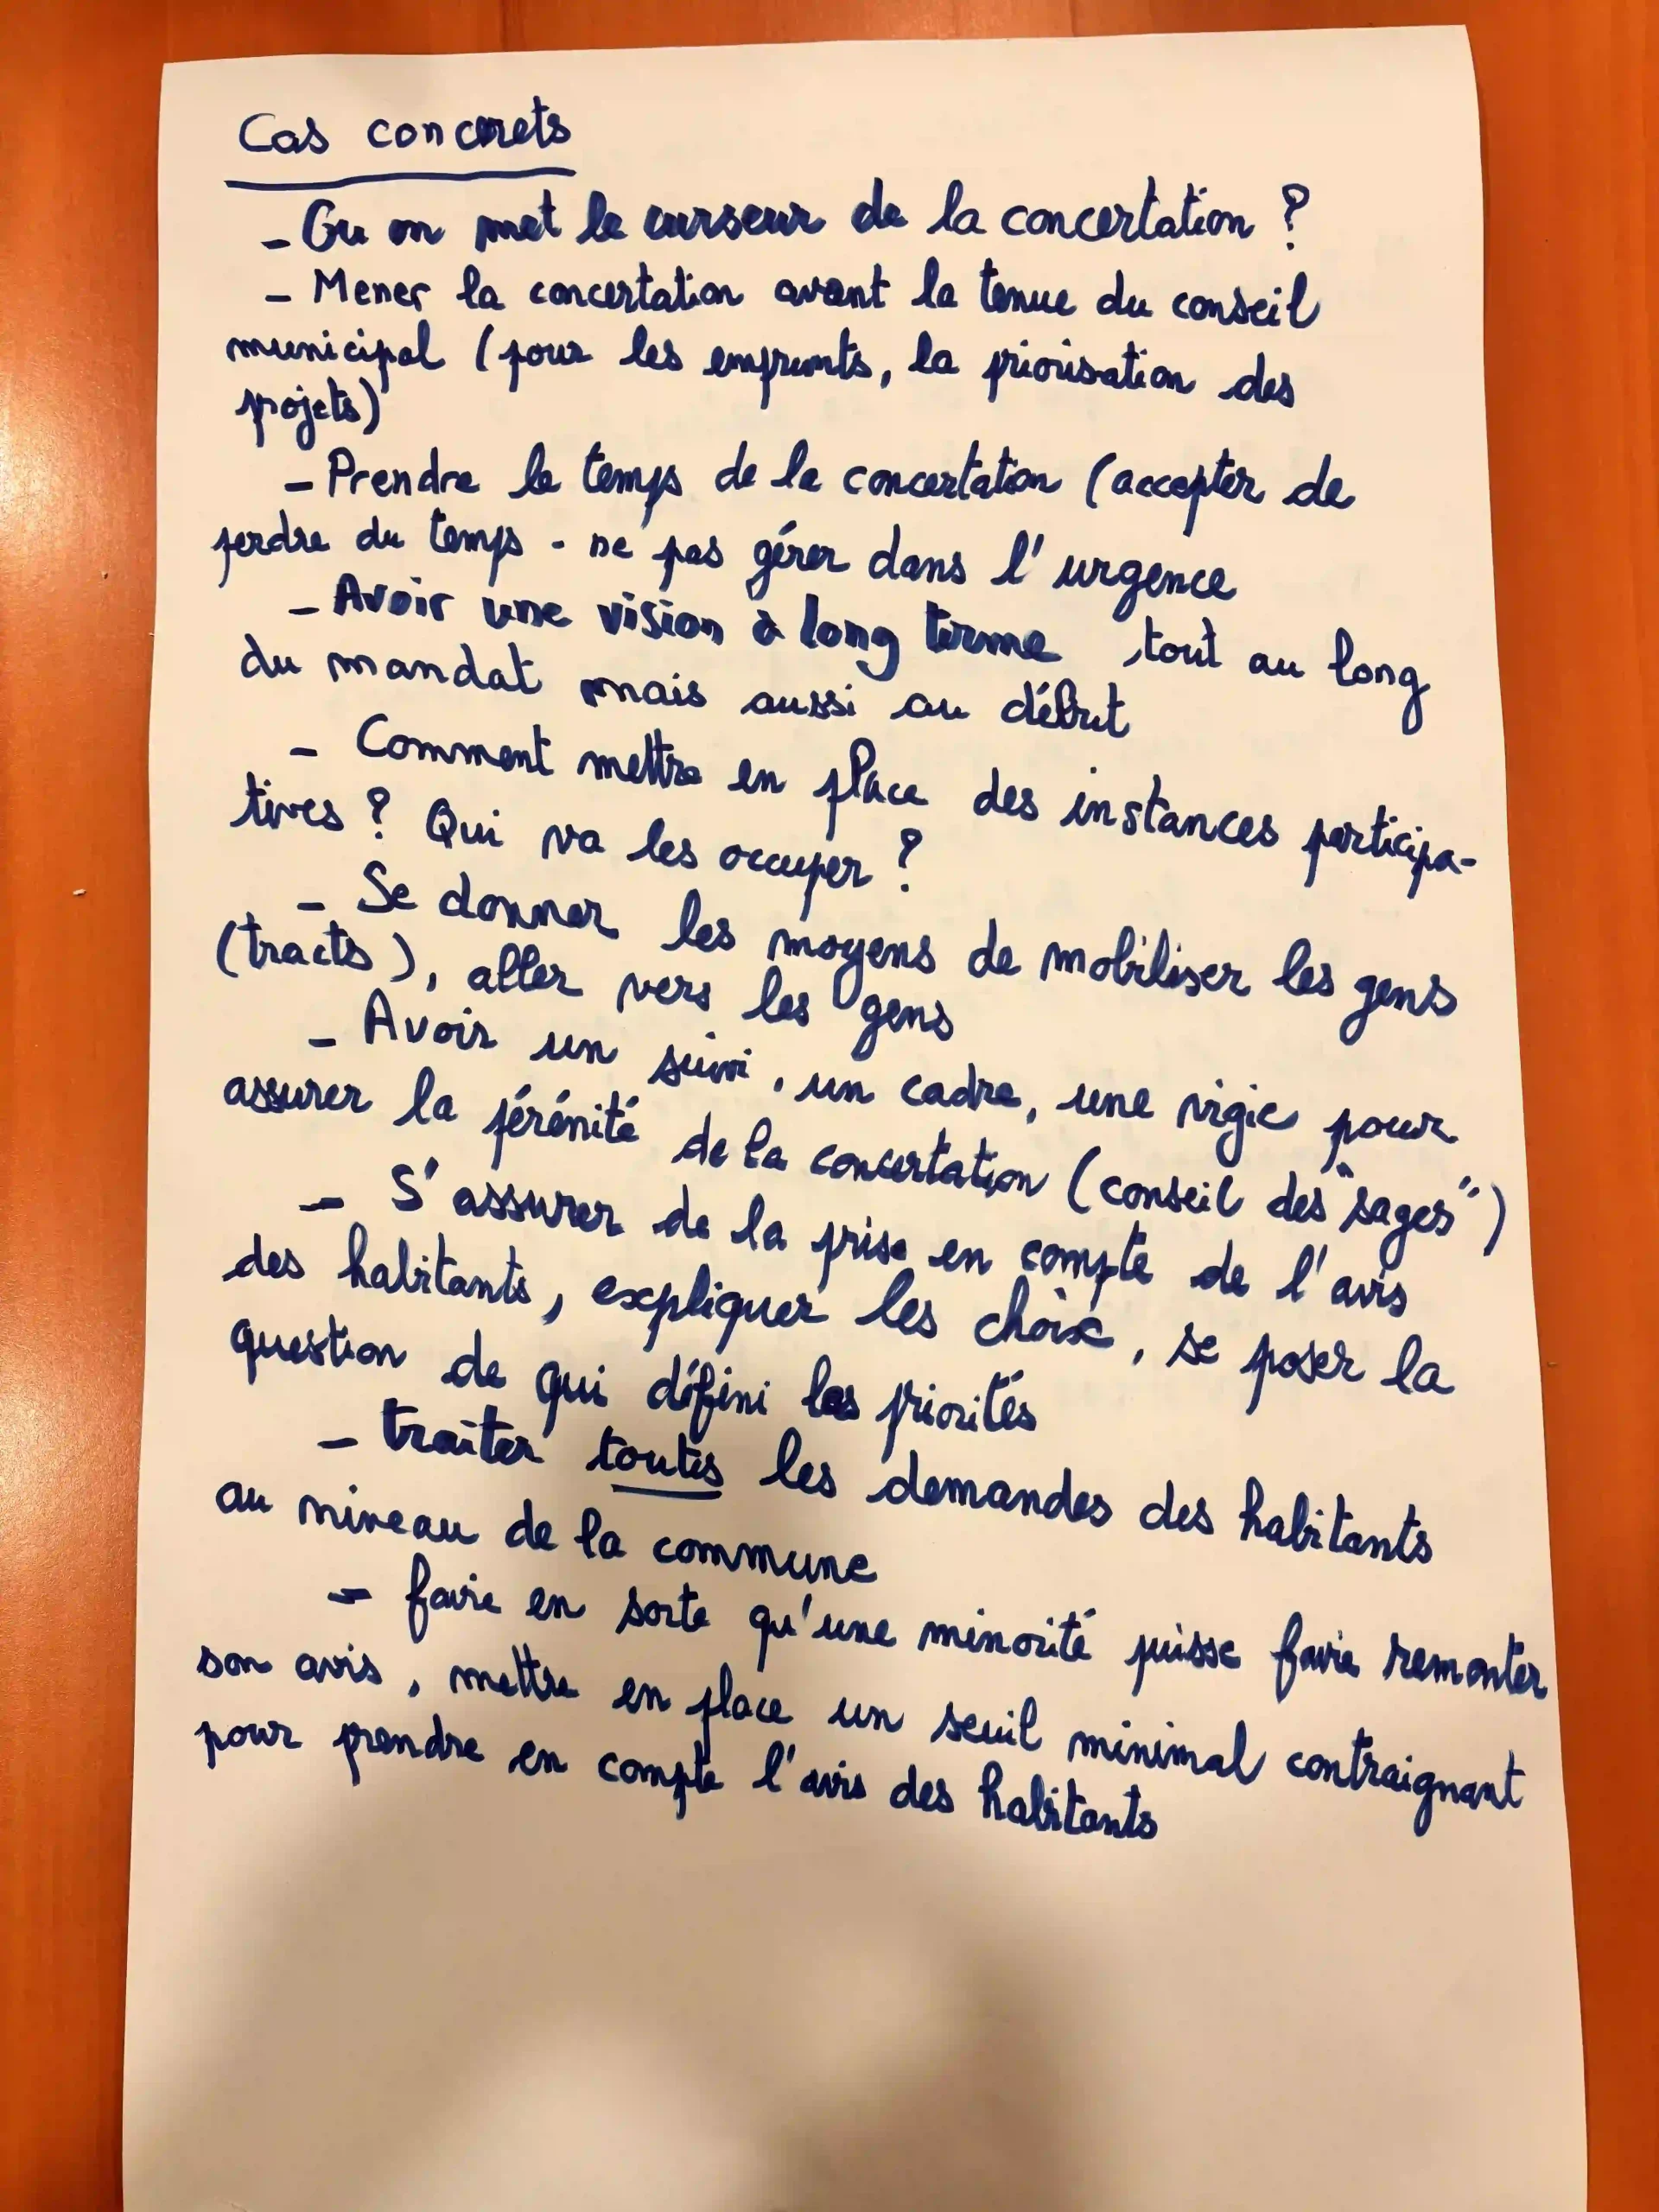 Cas concrets
- Ou on met le curseur de la concertation ?
- Mener la concertation avant la tenue du conseil
municipal (pour les emprunts, la priorisation des
projets)
- Prendre le temps de la concertation (accepter de
perdre du temps - ne pas gérer dans l'urgence
- Avoir une vision à long terme, tout au long
du mandat mais aussi au début
- Comment mettre en place des instances participa-
tives ? Qui va les occuper ?
- Se donner les moyens de mobiliser les gens
(tracts), aller vers les gens
- Avoir un suivi, un cadre, une vigie pour
assurer la pérénité de la concertation (conseil des "sages")
- S'assurer de la prise en compte de l'avis
des habitants, expliquer les choix, se poser la
question de qui défini les priorités
- traiter toutes les demandes des habitants
au niveau de la commune
- faire en sorte qu'une minorité puisse faire remonter
son avis, mettre en place un seuil minimal contraignant
pour prendre en compte l'avis des habitants